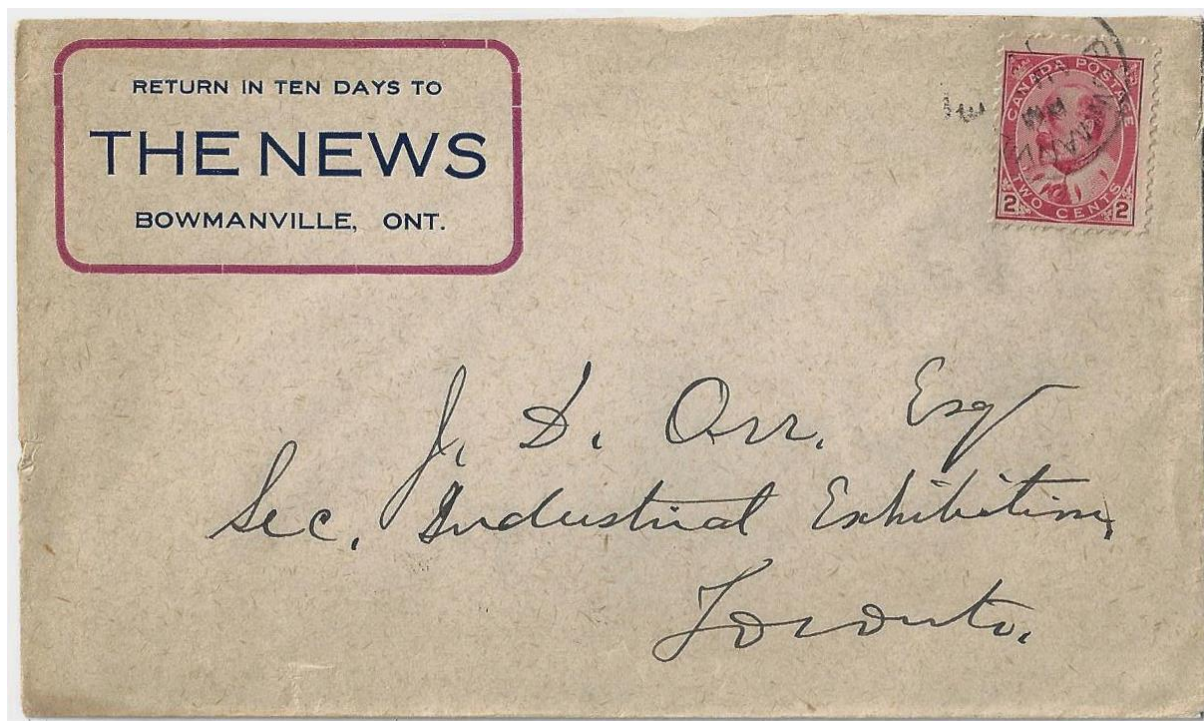 RETURN IN TEN DAYS TO
THE NEWS
BOWMANVILLE, ONT.
CANADA POSTAGE
2 TWO CENTS 2
J. D. Orr. Esq
Sec. Industrial Exhibition,
Toronto.